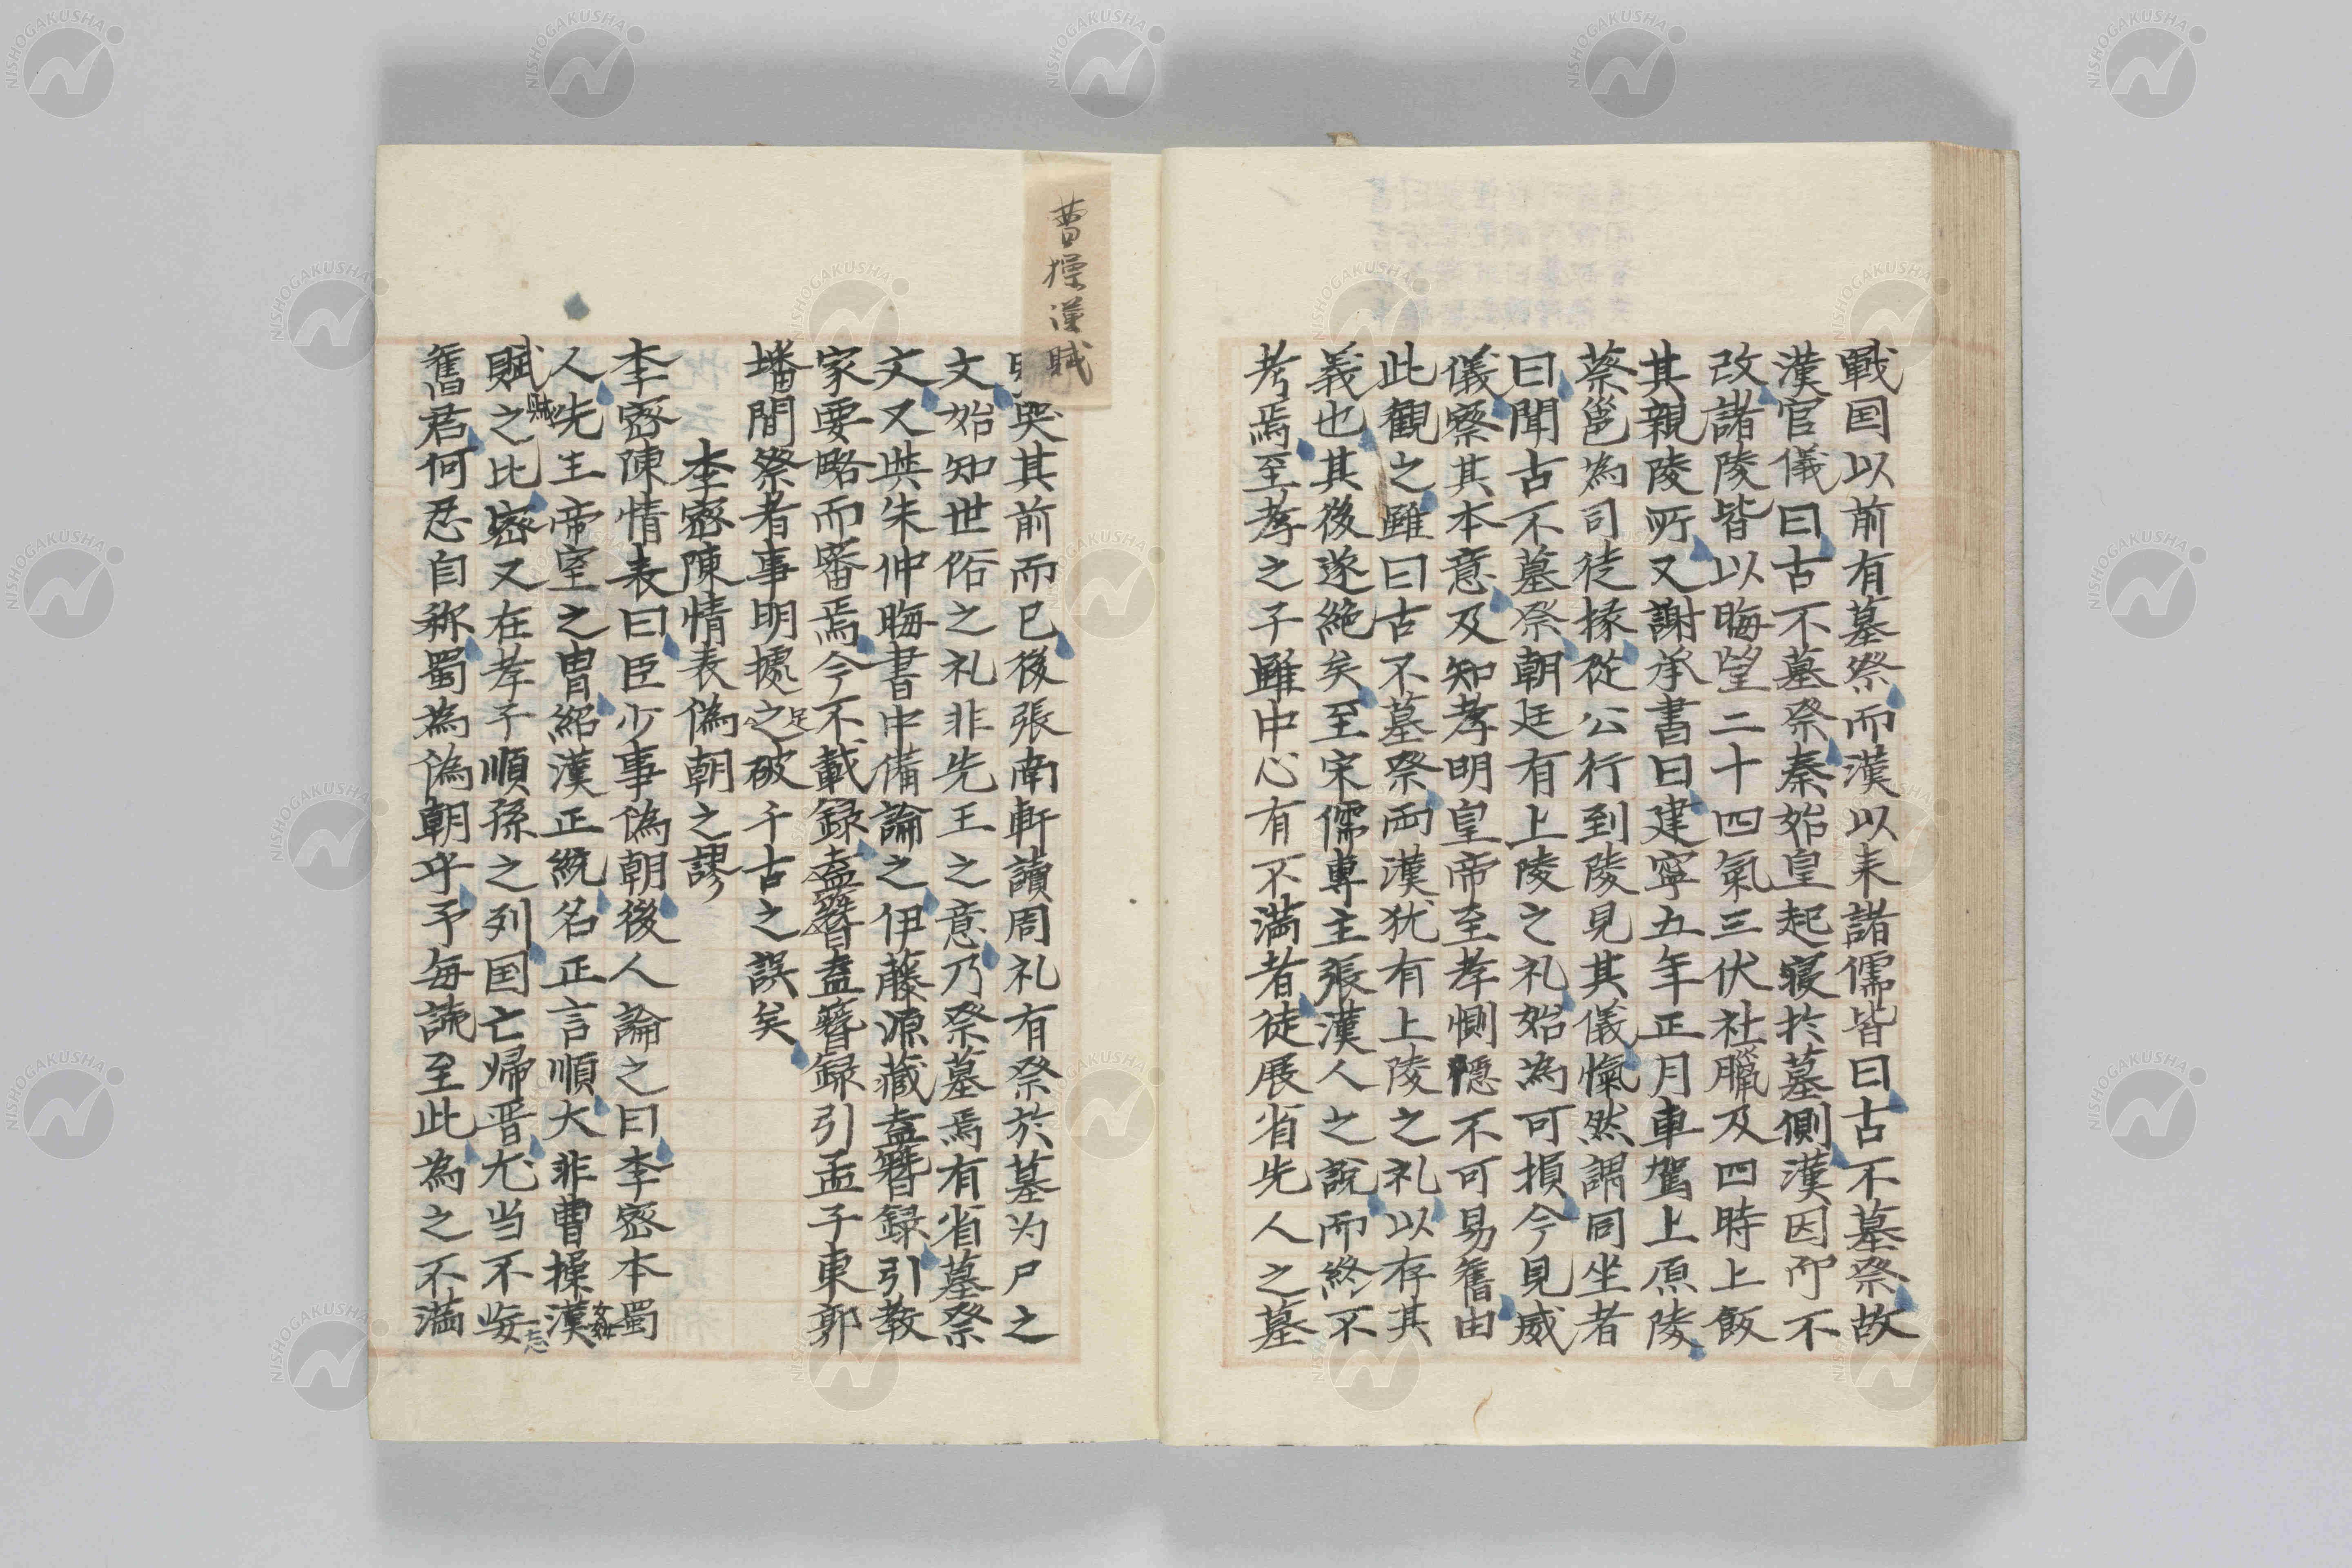 戰国以前有墓祭而漢以来諸儒皆曰古不墓祭故
漢官儀曰古不墓祭秦始皇起寝於墓側漢因而不
改諸陵皆以晦望二十四氣三伏社臘及四時上飯
其親陵所又謝承書曰建寧五年正月車駕上原陵
蔡邕為司徒掾從公行到陵見其儀愾然謂同坐者
曰聞古不墓祭朝廷有上陵之礼始為可損今見威
儀察其本意及知孝明皇帝至孝惻隠不可易舊由
此觀之雖曰古不墓祭両漢犹有上陵之礼以存其
義也其後遂絶矣至宋儒専主張漢人之説而終不
考焉至孝之子雖中心有不満者徒展省先人之墓
曹操漢賊
哭其前而已後張南軒讀周礼有祭於墓为尸之
文始知世俗之礼非先王之意乃祭墓焉有省墓祭
文又與朱仲晦書中備論之伊藤源藏盍簪録引教
家要略而審焉今不載録盍簪盍簪録引孟子東郭
墦間祭者事明據之足破千古之誤矣
李密陳情表偽朝之謬
李密陳情表曰臣少事偽朝後人論之曰李密本蜀
人先主帝室之冑紹漢正統名正言順大非曹操漢
賊之比密又在孝子順孫之列国亡帰晋尤当不
賊
志
舊君何忍自称蜀為偽朝乎予毎読至此為之不満
NISHOGAKUSHA